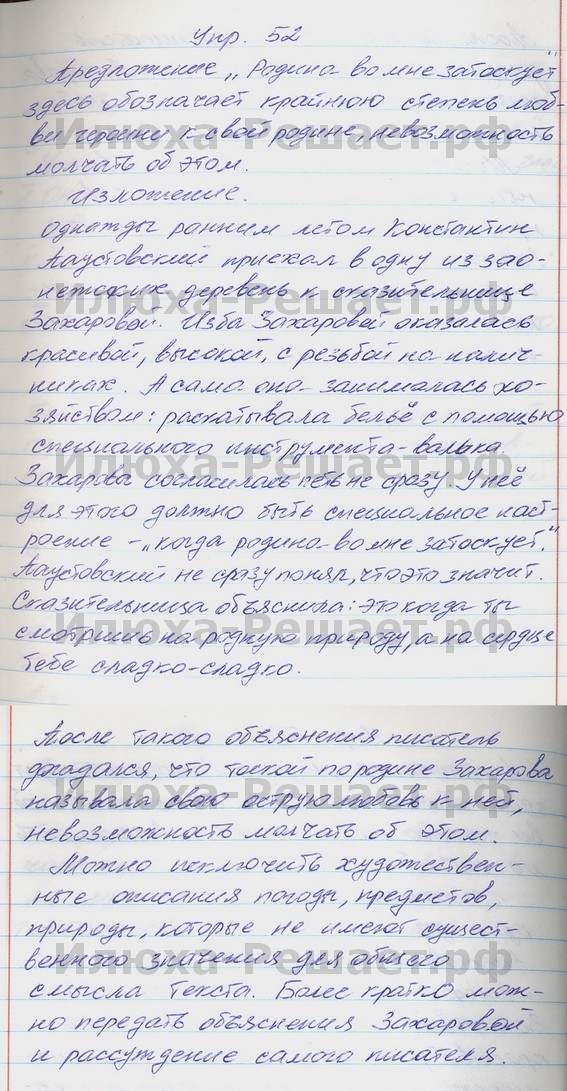 Упр. 52
Предложение „Родина во мне затоскует"
здесь обозначает крайнюю степень люб-
ви героини к свой родине, невозможность
молчать об этом.
Изложение.
Однажды ранним летом Константин
Паустовский приехал в одну из зао-
нежских деревень к сказительнице
Захаровой. Изба Захаровой оказалась
красивой, высокой, с резьбой на налич-
никах. А сама она занималась хо-
зяйством: раскатывала бельё с помощью
специального инструмента-валька.
Захарова согласилась петь не сразу. У неё
для этого должно быть специальное наст-
роение – „когда родина во мне затоскует."
Паустовский не сразу понял, что это значит.
Сказительница объяснила: это когда ты
смотришь на родную природу, а на сердце
тебе сладко-сладко.
После такого объяснения писатель
догадался, что тоской по родине Захарова
называла свою острую любовь к ней,
невозможность молчать об этом.
Можно исключить художествен-
ные описания погоды, предметов,
природы, которые не имеют сущест-
венного значения для общего
смысла текста. Более кратко мож-
но передать объяснения Захаровой
и рассуждение самого писателя.
Илюха-Решает.рф
Илюха-Решает.рф
Илюха-Решает.рф
Илюха-Решает.рф
Илюха-Решает.рф
Илюха-Решает.рф
Илюха-Решает.рф